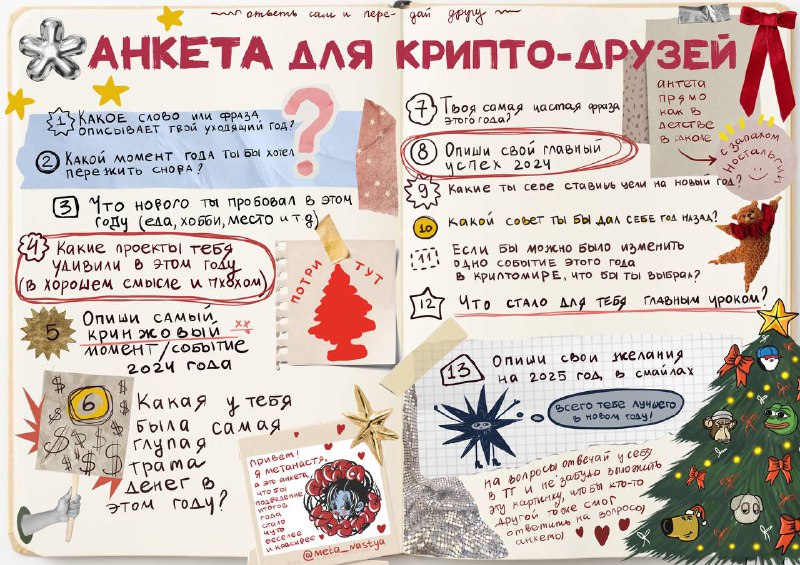 ответь сам и пере- дай другу
АНКЕТА ДЛЯ КРИПТО-ДРУЗЕЙ
1 Какое слово или фраза
описывает твой уходящий год?
2 Какой момент года ты бы хотел
пережить снова?
3 Что нового ты пробовал в этом
году (еда, хобби, место и т.д)
4 Какие проекты тебя
удивили в этом году
(в хорошем смысле и плохом)
5 Опиши самый
кринжовый
момент/событие
2024 года
6 Какая у тебя
была самая
глупая
трата
денег в
этом году?
ПОТРИ ТУТ
привет!
я метанастя,
а это анкета,
чтобы
подведение
итогов
года
стало
чуть
веселее
и красивее
@meta_nastya
7 Твоя самая частая фраза
этого года?
8 Опиши свой главный
успех 2024
9 Какие ты себе ставишь цели на новый год?
10 Какой совет ты бы дал себе год назад?
11 Если бы можно было изменить
одно событие этого года
в криптомире, что бы ты выбрал?
12 Что стало для тебя главным уроком?
13 Опиши свои желания
на 2025 год в смайлах
всего тебе лучшего
в новом году!
анкета
прямо
как в
детстве
в школе
с запахом
ностальгии
на вопросы отвечай у себя
в ТГ и не забудь выложить
эту картинку, чтобы кто-то
другой тоже смог
ответить на вопросы
анкеты